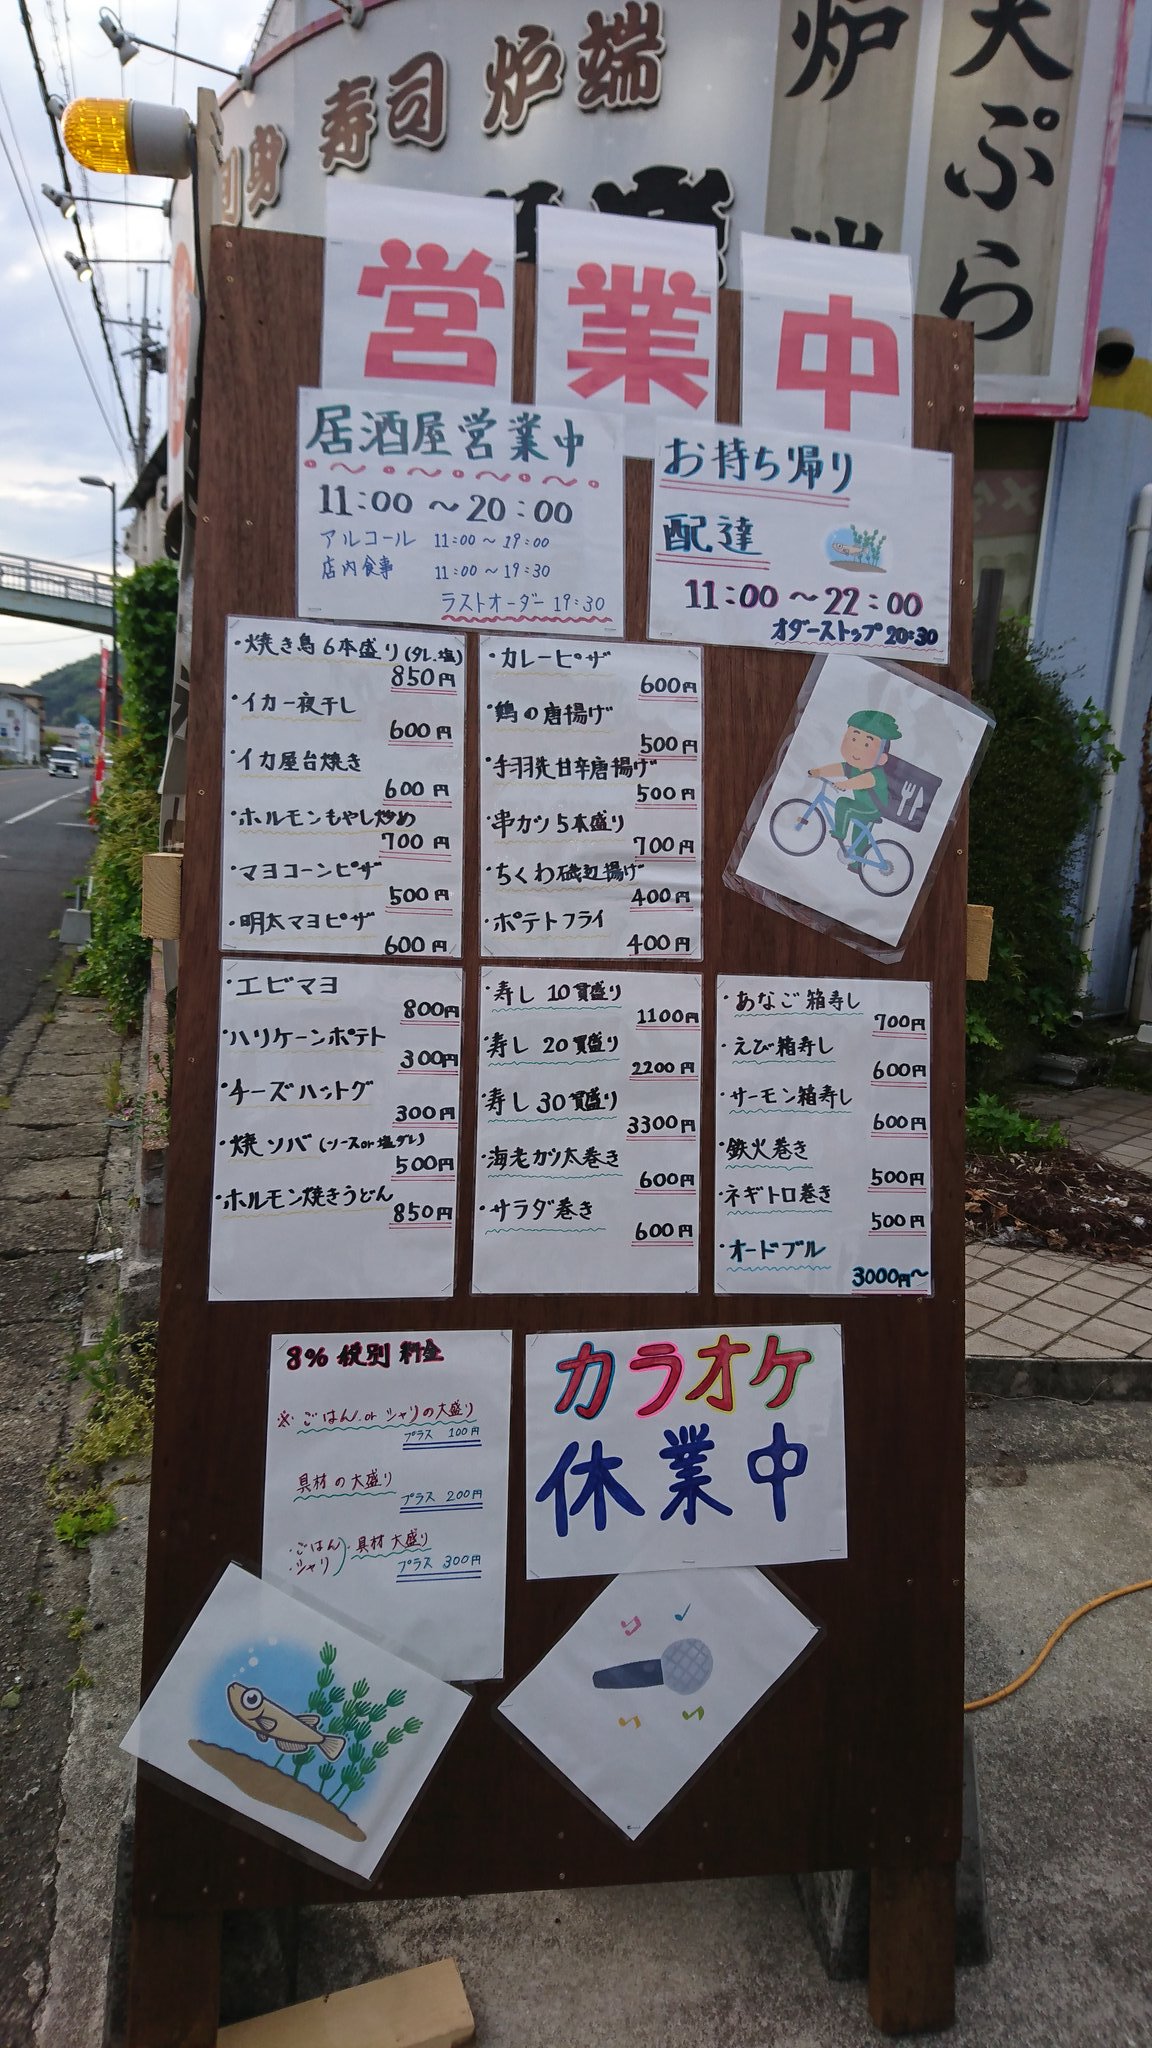 寿司 炉端
炉端
天ぷら
営業中
居酒屋営業中
11:00～20:00
アルコール 11:00～19:00
店内食事 11:00～19:30
ラストオーダー 19:30
お持ち帰り
配達
11:00～22:00
オダーストップ 20:30
・焼き鳥6本盛り(タレ.塩)
850円
・イカ一夜干し
600円
・イカ屋台焼き
600円
・ホルモンもやし炒め
700円
・マヨコーンピザ
500円
・明太マヨピザ
600円
・カレーピザ
600円
・鶏の唐揚げ
500円
・手羽先甘辛唐揚げ
500円
・串カツ5本盛り
700円
・ちくわ磯辺揚げ
400円
・ポテトフライ
400円
・エビマヨ
800円
・ハリケーンポテト
300円
・チーズハットグ
300円
・焼ソバ(ソースor塩ダレ)
500円
・ホルモン焼きうどん
850円
・寿し 10貫盛り
1100円
・寿し 20貫盛り
2200円
・寿し 30貫盛り
3300円
・海老カツ太巻き
600円
・サラダ巻き
600円
・あなご箱寿し
700円
・えび箱寿し
600円
・サーモン箱寿し
600円
・鉄火巻き
500円
・ネギトロ巻き
500円
・オードブル
3000円～
8% 税別料金
※ごはん.orシャリの大盛り
プラス 100円
具材の大盛り
プラス 200円
・ごはん
・シャリ)・具材大盛り
プラス 300円
カラオケ
休業中